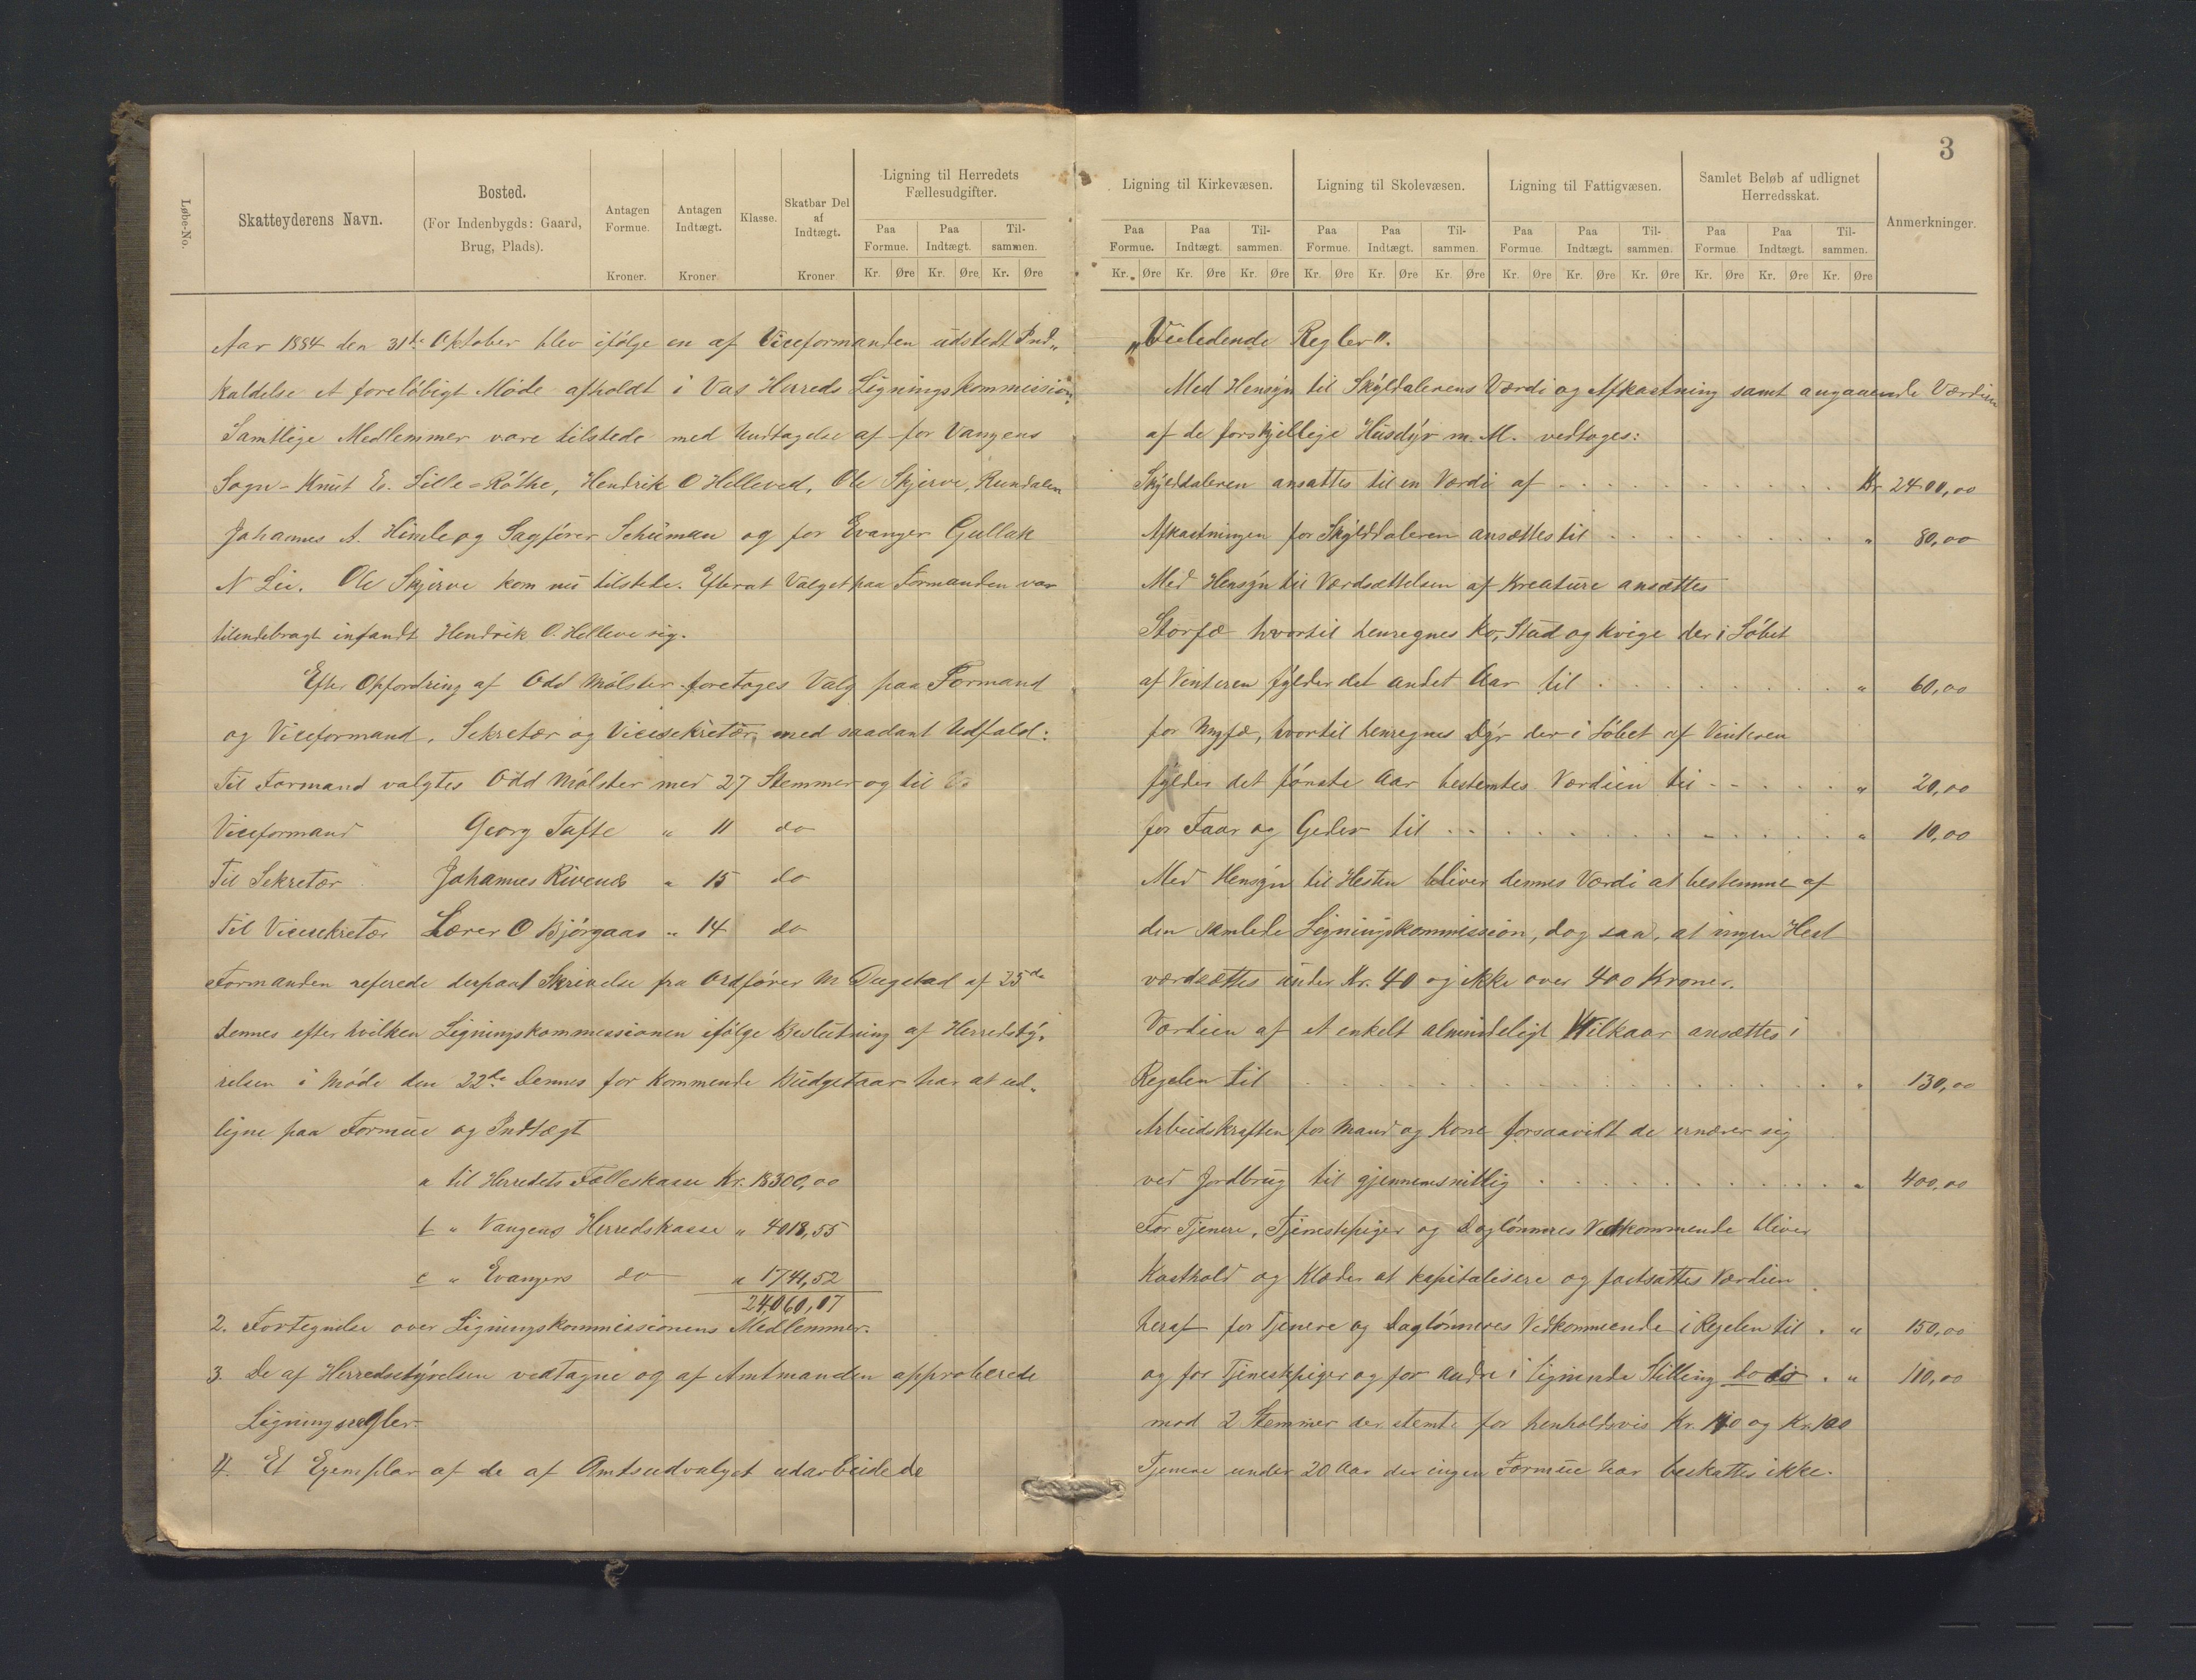 3
Løbe-No.
Skatteyderens Navn.
Bosted.
(For Indenbygds: Gaard,
Brug, Plads).
Antagen
Formue.
Kroner.
Antagen
Indtægt.
Kroner
Klasse.
Skatbar Del
af
Indtægt.
Kroner
Ligning til Herredets
Fællesudgifter.
Paa
Formue.
Paa
Indtægt.
Til-
sammen.
Kr. Øre Kr. Øre Kr. Øre
Aar 1884 den 31te Oktober blev ifølge en af Viceformanden udstedt Ind„
kaldelse et foreløbigt Møde afholdt i Vos Herreds Ligningskommission
Samtlige Medlemmer vare tilstede med Undtagelse af for Vangens
Sogn - Knut E. Lille-Røthe, Hendrik O Helleved, Ole Skjerve, Rundalen
Johannes A. Himle og Sagfører Schuman og for Evanger Gullak
N Lie. Ole Skjerve kom nu tilstede. Efterat Valget paa Formanden var
tilendebragt infandt Hendrik O. Helleve sig.
Efter Opfordring af Odd Mølster foretoges Valg paa Formand
og Viceformand, Sekretær og Vicesekretær, med saadant Udfald:
Til Formand valgtes Odd Mølster med 27 Stemmer og til
Viceformand Georg Tufte " 11 do
Til Sekretær Johannes Rivenes " 15 do
Til Vicesekretær Lærer O Bjørgaas " 14 do
Formanden referede derpaa Skrivelse fra Ordfører M Dugstad af 25de
dennes efter hvilken Ligningskommissionen ifølge Beslutning af Herredsty„
relsen i Møde den 22de dennes for kommende Budgetaar har at ud„
ligne paa Formue og Indtægt
a til Herredets Fælleskasse Kr. 18300,00
b " Vangens Herredskasse " 4018,55
c " Evangers do " 1741,52
24,060,07
2. Fortegnelse over Ligningskommissionens Medlemmer.
3. De af Herredsstyrelsen vedtagne og af Amtmanden approberede
Ligningsregler.
4. Et Exemplar af de af Amtsudvalget udarbeidede
Ligning til Kirkevæsen.
Paa
Formue.
Paa
Indtægt.
Til-
sammen.
Kr. Øre Kr. Øre Kr. Øre
Ligning til Skolevæsen.
Paa
Formue.
Paa
Indtægt.
Til-
sammen.
Kr. Øre Kr. Øre Kr. Øre
Ligning til Fattigvæsen.
Paa
Formue.
Paa
Indtægt.
Til-
sammen.
Kr. Øre Kr. Øre Kr. Øre
Samlet Beløb af udlignet
Herredsskat.
Paa
Formue
Paa
Indtægt.
Til-
sammen.
Kr. Øre Kr. Øre Kr. Øre
Anmerkninger.
„Veiledende Regler".
Med Hensyn til Skyldalerens Værdi og Afkastning samt angaaende Værdien
af de forskjellige Husdyr m. M. vedtoges:
Skylddaleren ansattes til en Værdi af . . . Kr 2400,00
Afkastningen for Skylddaleren ansættes til . . . " 80,00
Med Hensyn til Værdsættelsen af Kreature ansættes
Storfæ hvortil henregnes Ko, Stud og Kvige der i Løbet
af Vinteren fylder det andet Aar til . . . " 60,00
for Ungfæ, hvortil henregnes Dyr der i Løbet af Vinteren
fylder det første Aar bestemtes Værdien til . . . " 20,00
for Faar og Geder til . . . " 10,00
Med Hensyn til Hesten bliver dennes Værdi at bestemme af
den samlede Ligningskommission, dog saa, at ingen Hest
værdsættes under Kr. 40 og ikke over 400 Kroner.
Værdien af et enkelt almindeligt Vilkaar ansættes i
Regelen til . . . " 130,00
Arbeidskraften for Mand og Kone forsaavidt de ernærer sig
ved Jordbrug til gjennemsnitlig . . . " 400,00
For Tjenere, Tjenestepiger og Daglønneres Vedkommende bliver
Kosthold og Klæder at kapitalisere og fastsattes Værdien
heraf for Tjenere og Daglønneres Vedkommende i Regelen til . " 150,00
og for Tjenestepiger og for Andre i lignende Stilling do do . " 110,00
mod 2 Stemmer der stemte for henholdsvis Kr. 110 og Kr 100
Tjenere under 20 Aar der ingen Formue har beskattes ikke.